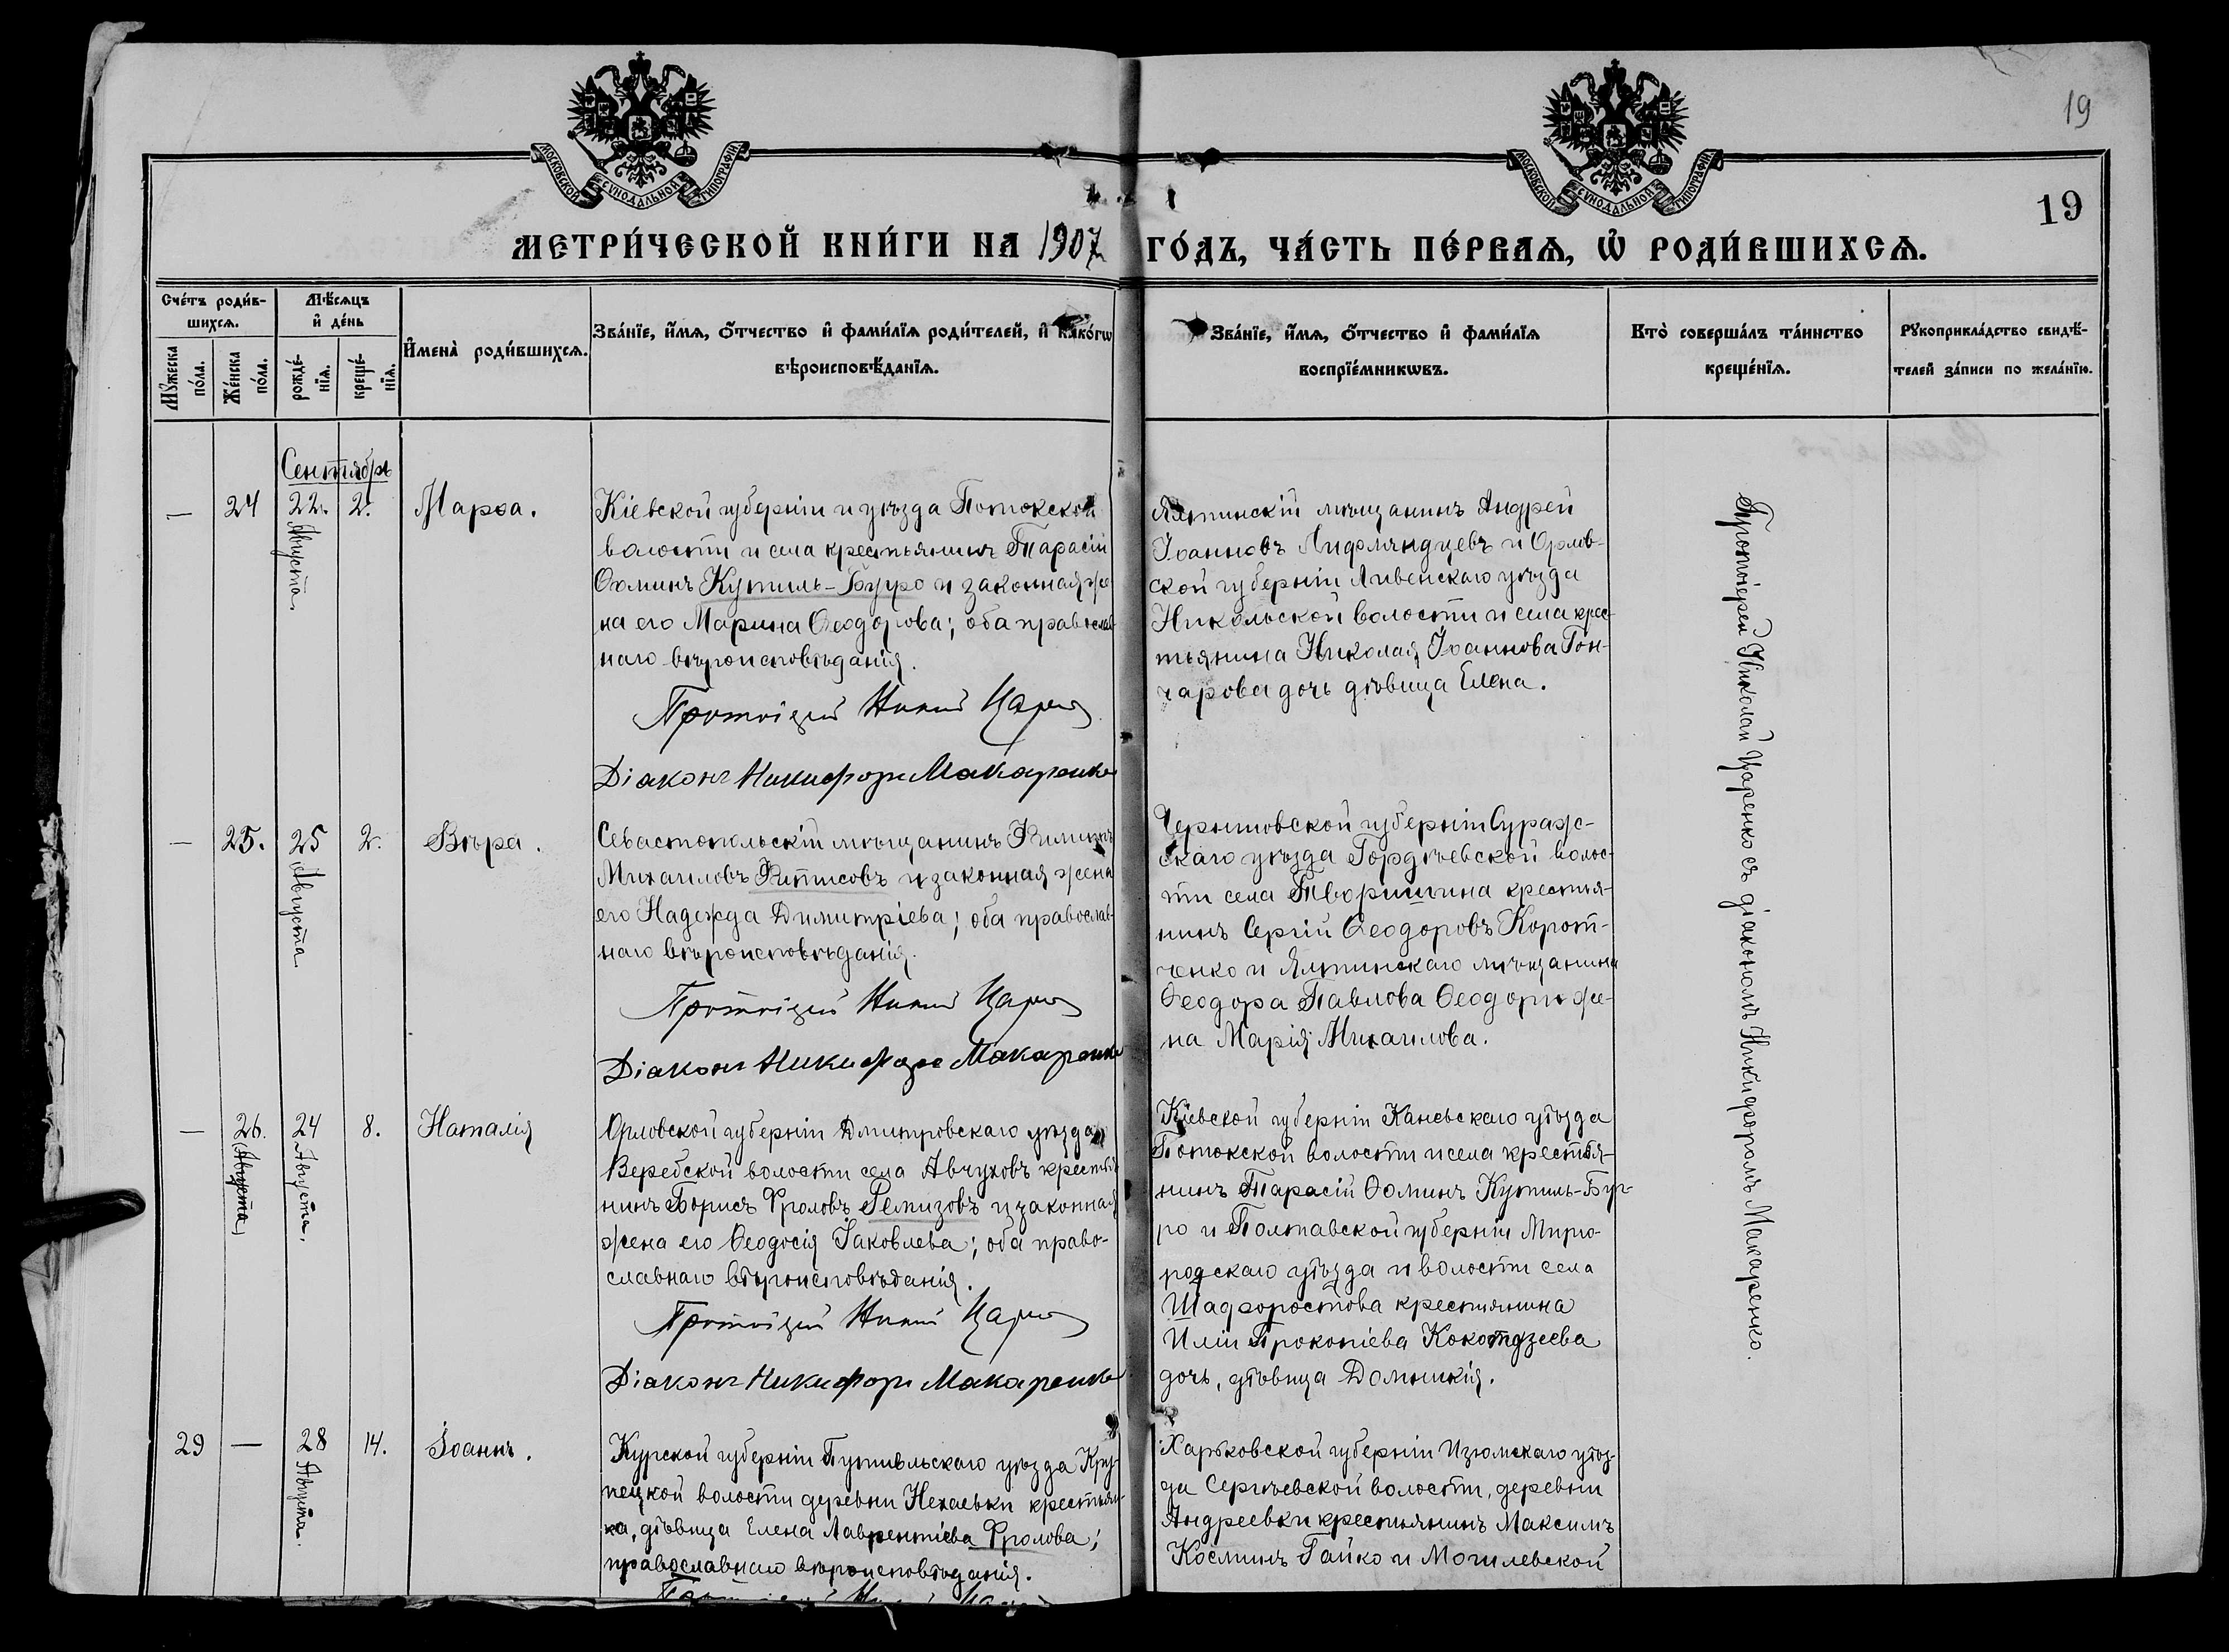 19
19
МОСКОВСКОЙ СУНОДАЛЬНОЙ ТИПОГРАФІИ
МОСКОВСКОЙ СУНОДАЛЬНОЙ ТИПОГРАФІИ
МЕТРИ́ЧЕСКОЙ КНИ́ГИ НА 1907 ГО́ДЪ, ЧА́СТЬ ПЕ́РВАѦ, Ѡ РОДИ́ВШИХСѦ.
Сче́тъ роди́в-
шихсѧ.
Мꙋжеска по́ла.
Же́нска по́ла.
Мѣ́сѧцъ
и де́нь
рожде́-
нїѧ.
креще́-
нїѧ.
Имена̀ роди́вшихсѧ.
Зва́нїе, и́мѧ, о́тчество и фами́лїѧ роди́телей, и како́гѡ
вѣроисповѣ́данїѧ.
Зва́нїе, и́мѧ, о́тчество и фами́лїѧ
воспрїе́мникѡвъ.
Кто̀ соверша́лъ та́инство
креще́нїѧ.
Рꙋкоприкла́дство свидѣ́-
телей за́писи по жела́нїю.
Сентябрь
— 24 22. Августа. 2. Марѳа.
Кіевской губерніи и уѣзда Потокской
волости и села крестьянинъ Тарасій
Ѳоминъ Кутиль-Бугро и законная же-
на его Марина Ѳеодорова; оба православ-
наго вѣроисповѣданія.
Протоіерей Николай Царенко
Діаконъ Никифоръ Макаренко
Ялтинскій мѣщанинъ Андрей
Іоанновъ Лифляндцевъ и Орлов-
ской губерніи Ливенскаго уѣзда
Никольской волости и села крес-
тьянина Николая Іоаннова Гон-
чарова дочь дѣвица Елена.
— 25. 25 Августа 2. Вѣра.
Севастопольскій мѣщанинъ Филиппъ
Михаиловъ Фитисовъ и законная жена
его Надежда Димитріева; оба православ-
наго вѣроисповѣданія.
Протоіерей Николай Царенко
Діаконъ Никифоръ Макаренко
Черниговской губерніи Сураж-
скаго уѣзда Гордѣевской волос-
ти села Творишина крестья-
нинъ Сергій Ѳеодоровъ Корот-
ченко и Ялтинскаго мѣщанина
Ѳеодора Павлова Ѳеодори же-
на Марія Михаилова.
— 26. (Августа) 24 Августа. 8. Наталія
Орловской губерніи Дмитровскаго уѣзда
Веребской волости села Авчуховъ крестья-
нинъ Борисъ Фроловъ Ремизовъ и законная
жена его Ѳеодосія Іаковлева; оба право-
славнаго вѣроисповѣданія.
Протоіерей Николай Царенко
Діаконъ Никифоръ Макаренко
Кіевской губерніи Каневскаго уѣзда
Потокской волости и села крестья-
нинъ Тарасій Ѳоминъ Кутиль-Буг-
ро и Полтавской губерніи Мирго-
родскаго уѣзда и волости села
Шафоростова крестьянина
Иліи Прокопіева Кокотдзеева
дочь, дѣвица Домникія.
29 — 28 Августа. 14. Іоаннъ.
Курской губерніи Путивльскаго уѣзда Кру-
пецкой волости деревни Нехаевки крестьян-
ка, дѣвица Елена Лаврентіева Фролова;
православнаго вѣроисповѣданія.
Харьковской губерніи Изюмскаго уѣз-
да Сергѣевской волости, деревни
Андреевки крестьянинъ Максимъ
Косминъ Гайко и Могилевской
Протоіерей Николай Царенко съ діакономъ Никифоромъ Макаренко.